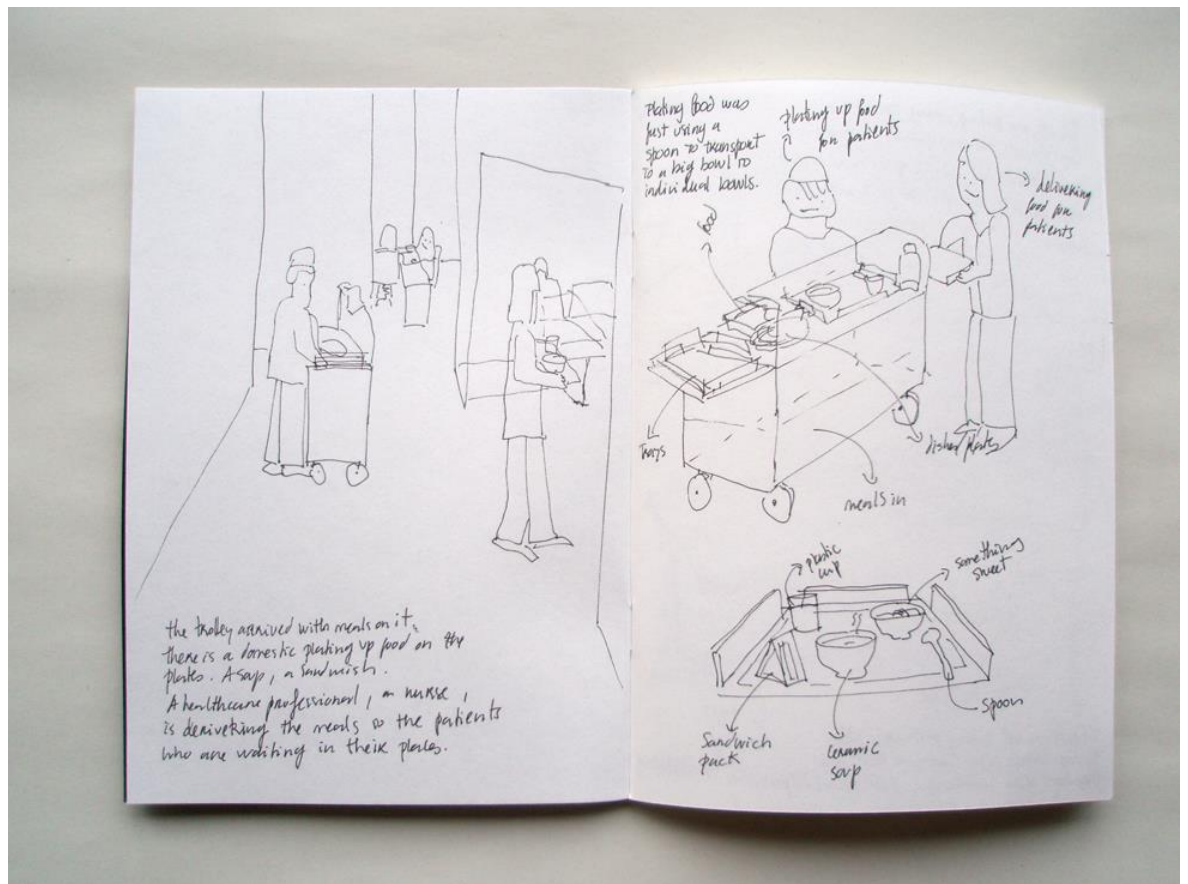 the trolley arrived with meals on it.
there is a domestic plating up food on the
plates. A soup, a sandwish.
A healthcare professional, or nurse,
is deriveking the meals to the patients
who are waiting in their plates.
Plating food was
just using a
spoon to transport
to a big bowl to
individual bowls.
plating up food
for patients
delivering
food for
patients
food
trays
dishes/plates
meals in
plastic
cup
something
sweet
spoon
Sandwich
pack
ceramic
soup